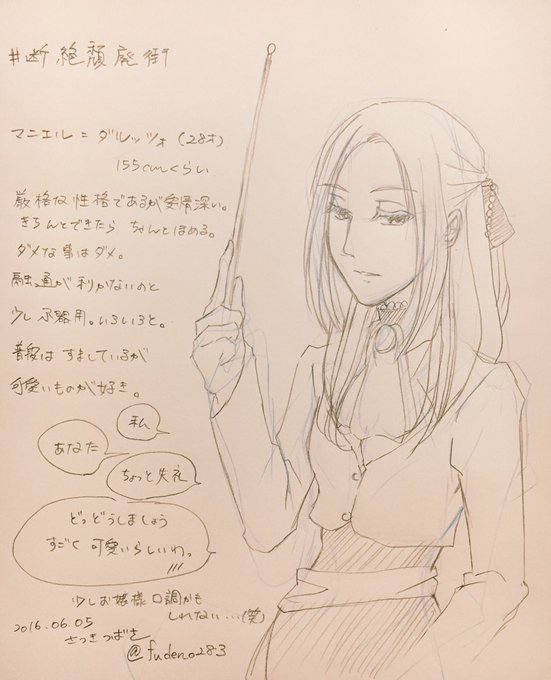 #断絶頽廃街
マニエル=ダルッツォ(28才)
155cmくらい
厳格な性格であるが愛情深い。
きちんとできたら ちゃんとほめる。
ダメな事はダメ。
融通が利かないのと
少し不器用。いろいろと。
普段は すましているが
可愛いものが好き。
私
あなた
ちょっと失礼
どっどうしましょう
すごく 可愛いらしいわ。
少しお嬢様口調かも
しれない…(笑)
2016.06.05
さつきつばさ
@fudeno283